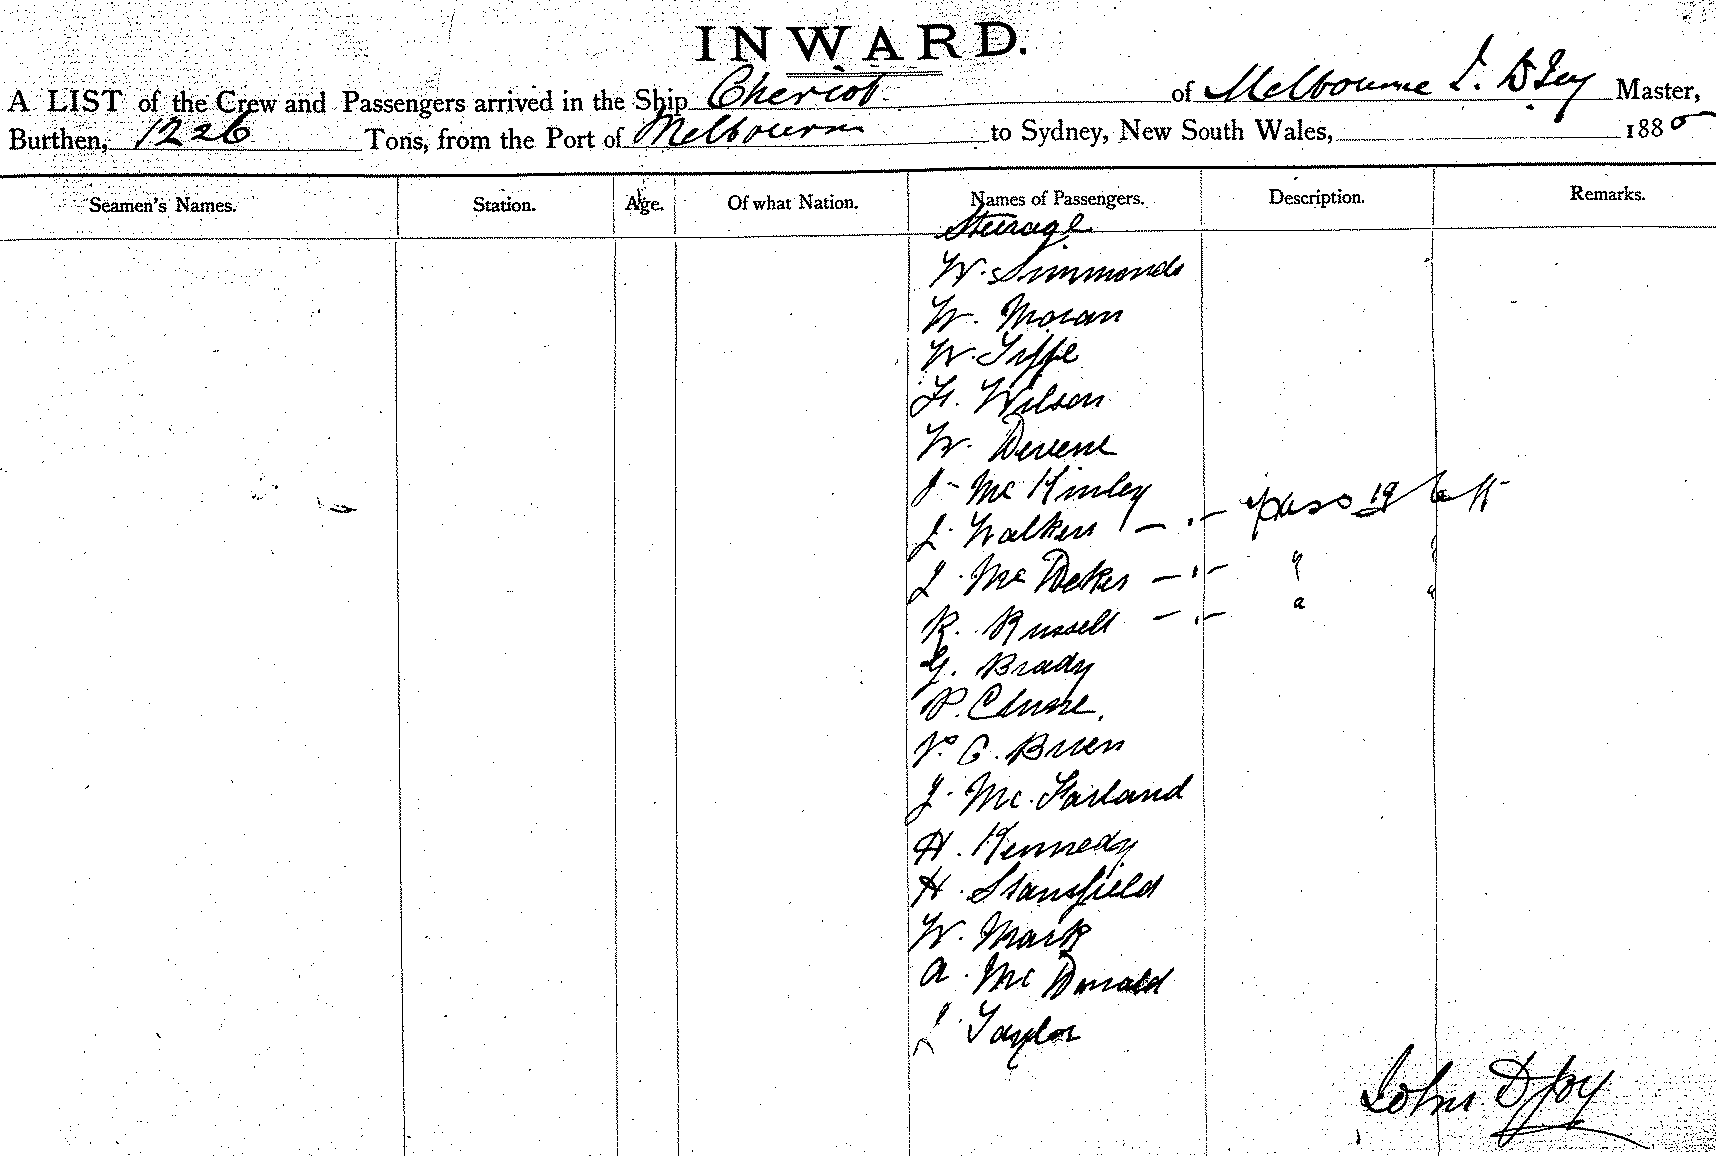 INWARD.
A LIST of the Crew and Passengers arrived in the Ship Cheviot of Melbourne J. D Joy Master,
Burthen, 1226 Tons, from the Port of Melbourne to Sydney, New South Wales, 188
Seamen's Names. Station. Age. Of what Nation. Names of Passengers. Description. Remarks.
Steerage
W. Simmonds
W. Moran
W.
H. Wilson
W. Devene
J Mc Kinley
J. Walker Pass 19
J. Mc "
R. Russell "
G. Brady
P. Clune.
P. O. Brien
J. Mc. Farland
H. Kennedy
H. Stansfield
W. Mark
A. Mc Donald
J. Taylor
John D Joy